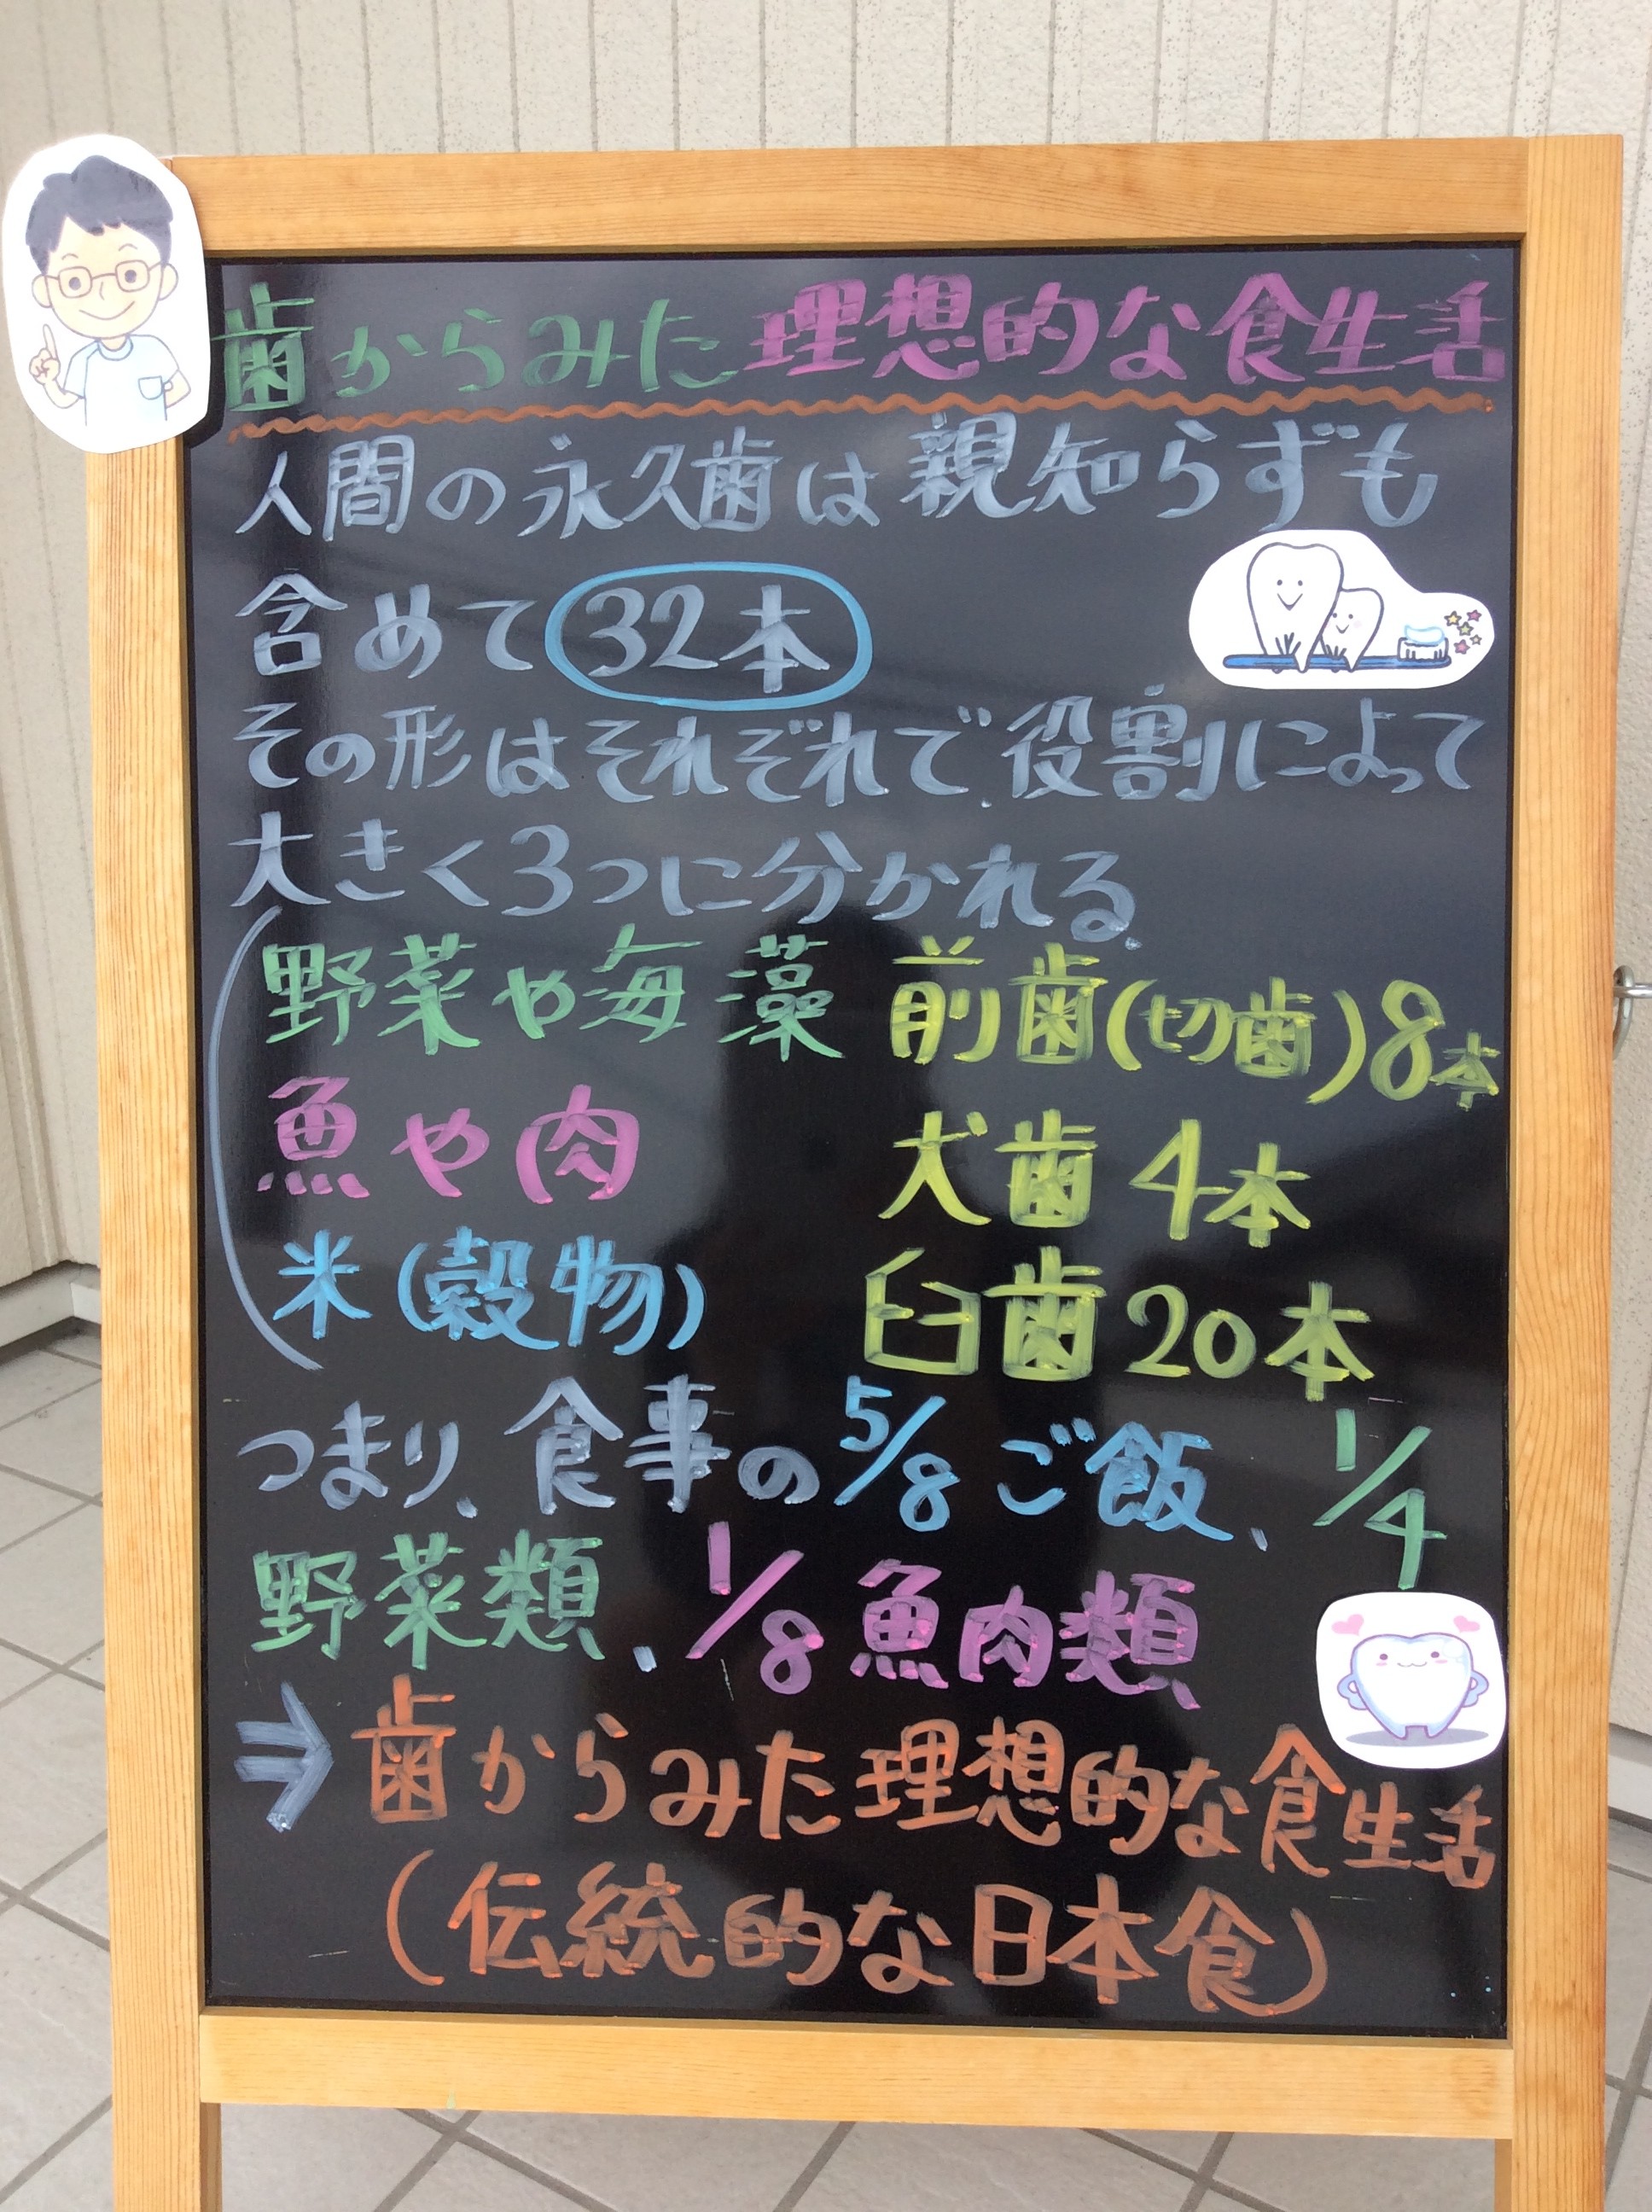 歯からみた理想的な食生活
人間の永久歯は親知らずも
含めて32本
その形はそれぞれで、役割によって
大きく3つに分かれる。
野菜や海藻 前歯(切歯)8本
魚や肉 犬歯4本
米(穀物) 臼歯20本
つまり、食事の5/8ご飯、1/4
野菜類、1/8魚肉類
⇒歯からみた理想的な食生活
(伝統的な日本食)